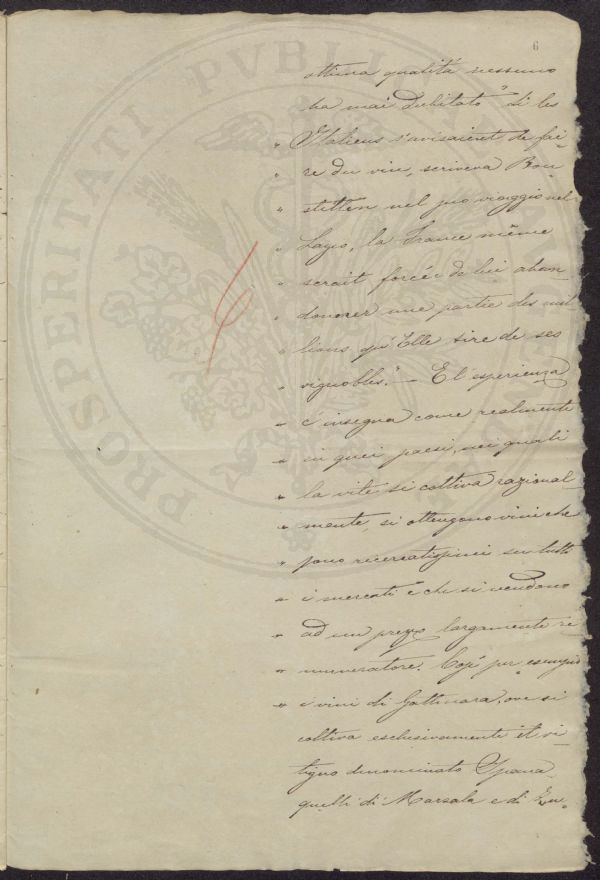 PROSPERITATI PVBLICAE AVGENDAE
6
ottima qualità nessuno
ha mai dubitato "Si les
" Italiens s'avisaient de fai=
" re du vin, scriveva Bon=
" stetten nel suo viaggio nel
" Lazio, la France même
" serait forcée de lui aban
" donner une partie des mil
" lions qu'Elle tire de ses
" vignobles." — E l'esperienza
" c'insegna come realmente
" in quei paesi, nei quali
" la vite si coltiva razional
" mente, si ottengono vini che
" sono ricercatissimi su tutti
" i mercati e che si vendono
" ad un prezzo largamente re
" muneratore. Così per esempio
" i vini di Gattinara, ove si
coltiva esclusivamente il vi=
tigno denominato Spana
quelli di Marsala e di Zu=